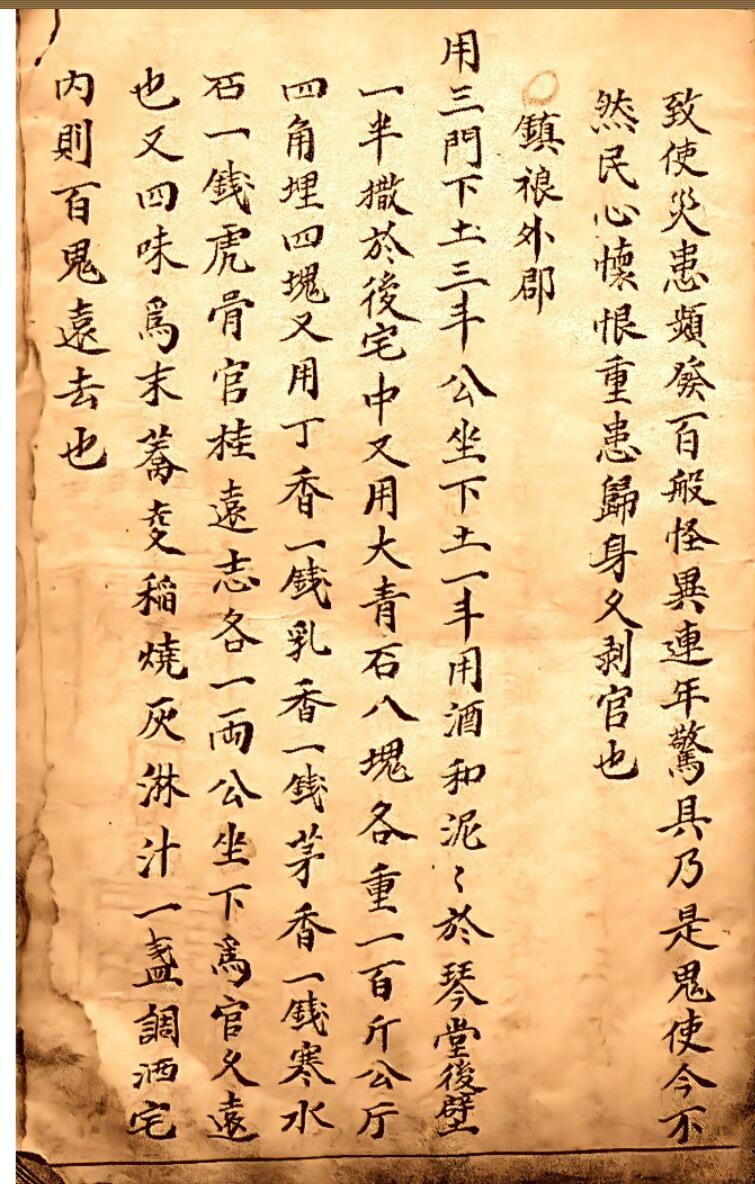 致使災患頻發百般怪異連年驚具乃是鬼使今不
然民心懷恨重患歸身久剥官也
鎮禓外郡
用三門下土三斗公坐下土一斗用酒和泥〻於琴堂後壁
一半撒於後宅中又用大青石八塊各重一百斤公厅
四角埋四塊又用丁香一錢乳香一錢茅香一錢寒水
石一錢虎骨官桂遠志各一兩公坐下為官久遠
也又四味爲末蕎麦稲燒灰淋汁一盞調洒宅
内則百鬼遠去也